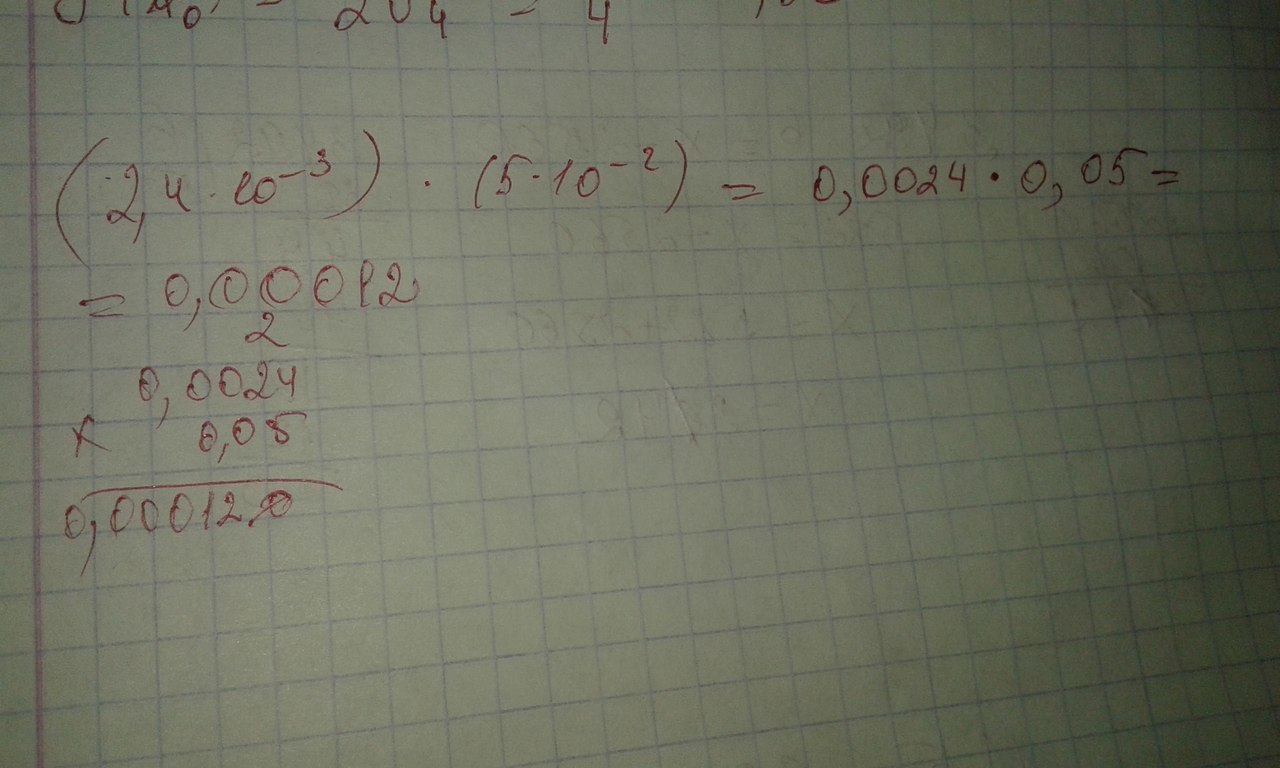 (2,4 · 10⁻³) · (5 · 10⁻²) = 0,0024 · 0,05 =
= 0,00012
2
0,0024
× 0,05
0,000120